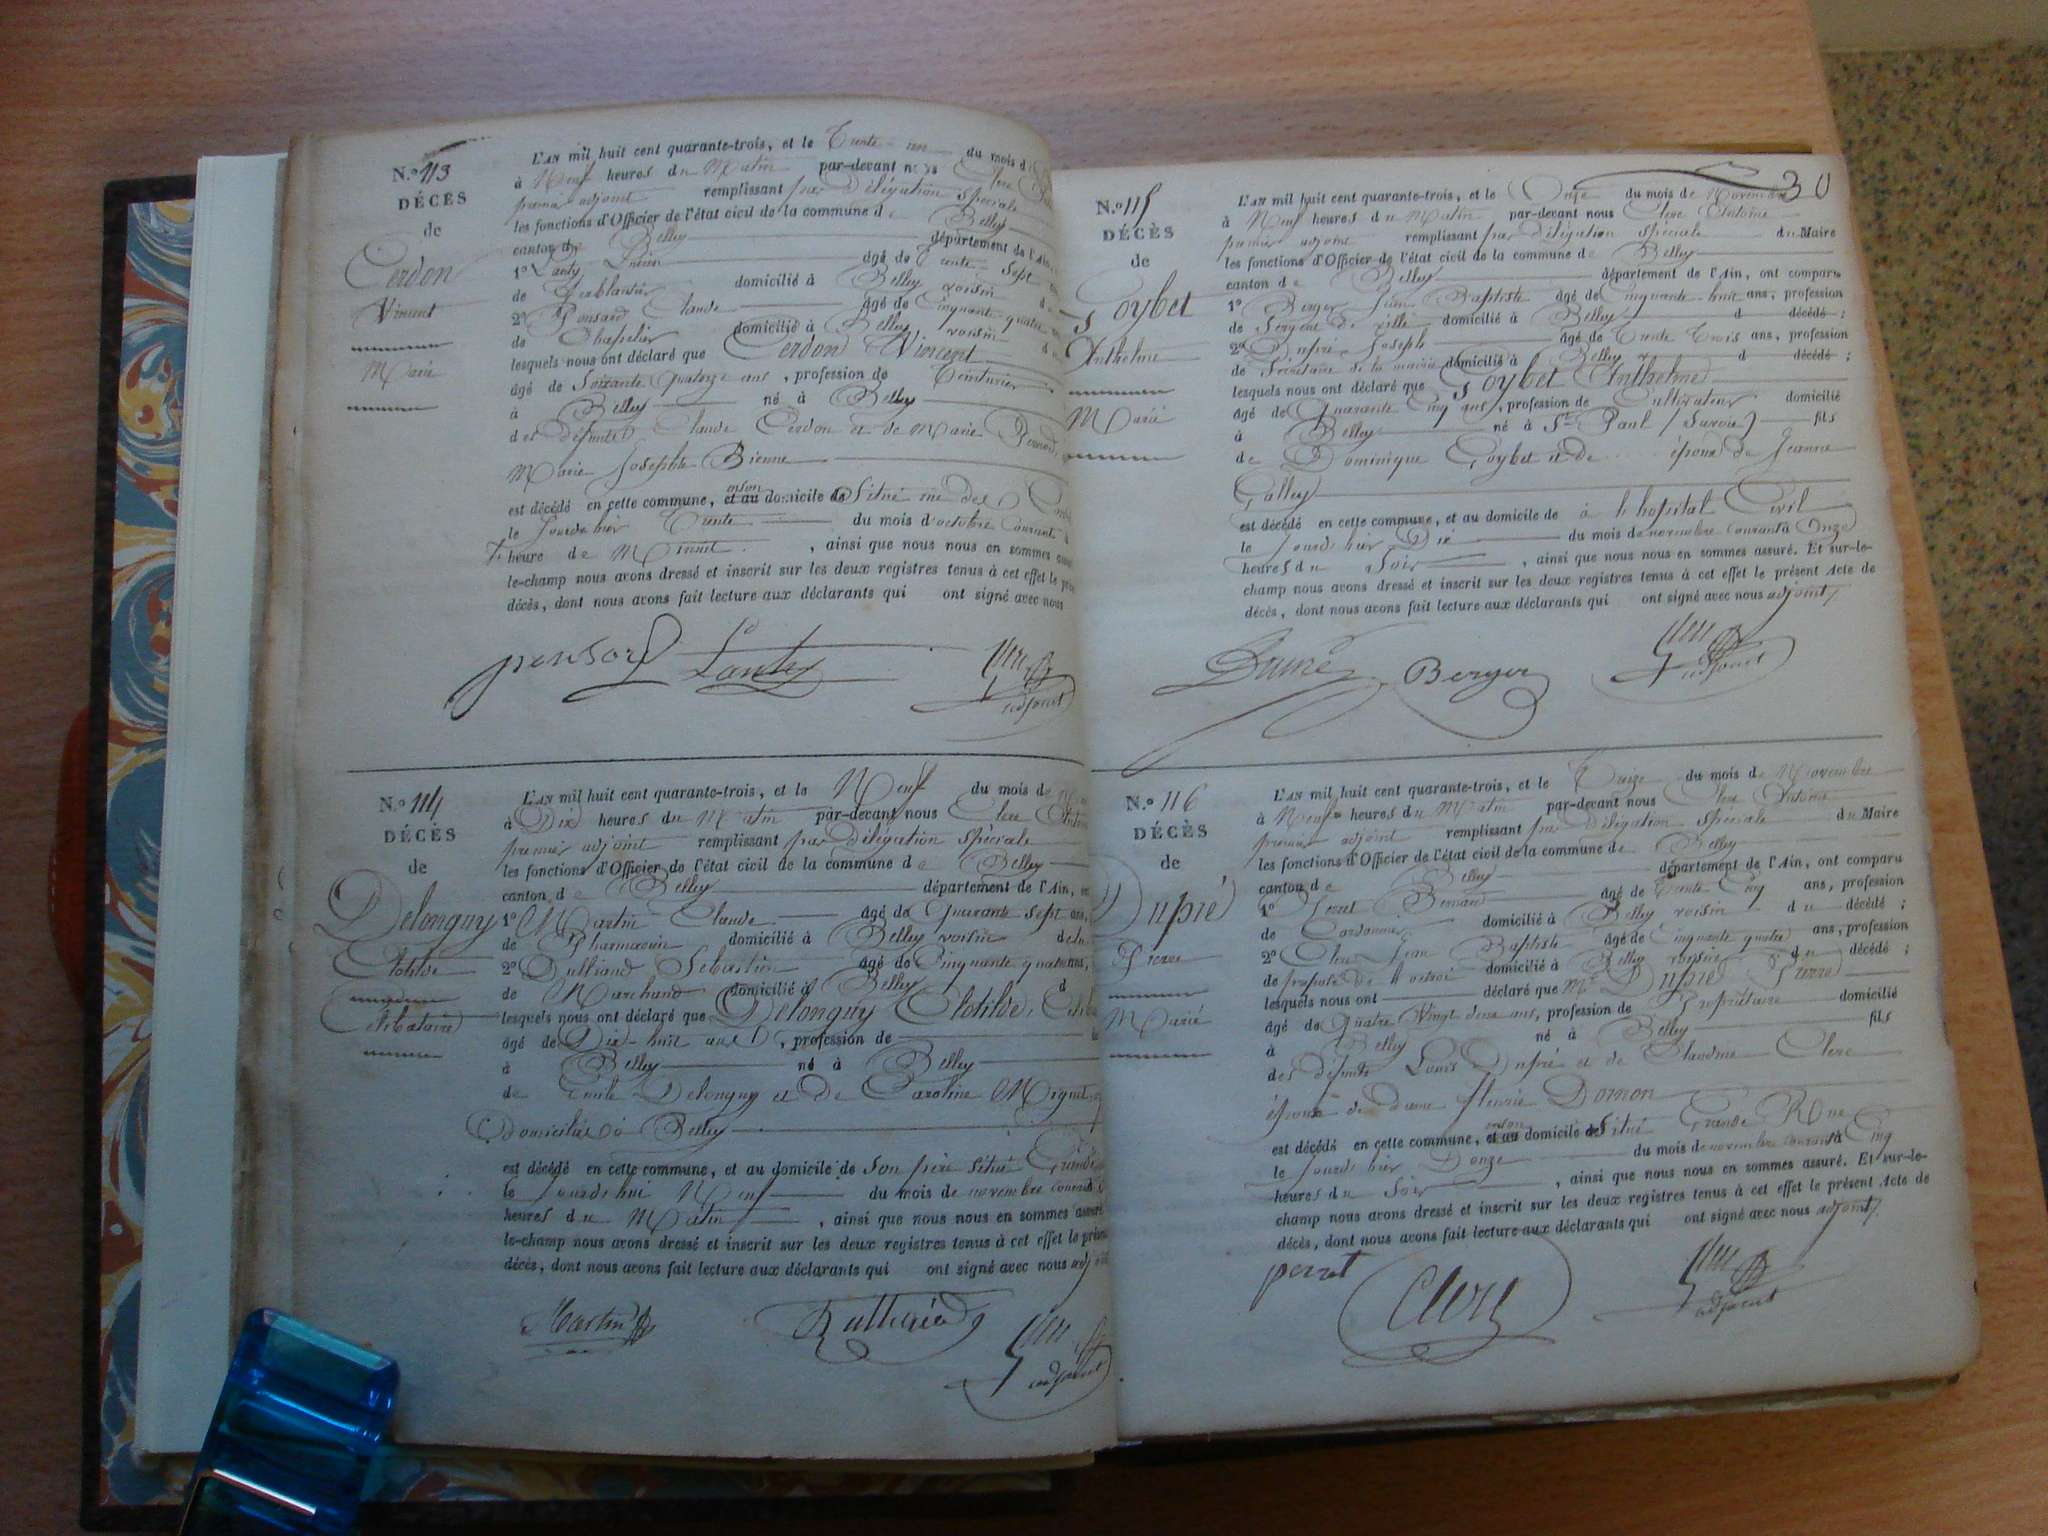 N.º 113
DÉCÈS
de
Cerdon
Vincent
Marié
L'AN mil huit cent quarante-trois, et le Trente-un du mois d
à Neuf heures du Matin par-devant nous Clerc
premier adjoint remplissant par Délégation spéciale
les fonctions d'Officier de l'état civil de la commune de Belley
canton de Belley département de l'Ain,
1º Lanty âgé de Trente-Sept
de ferblantier domicilié à Belley voisin d
2º Ponsard Claude âgé de Cinquante quatre
de Chapelier domicilié à Belley, voisin d
lesquels nous ont déclaré que Cerdon Vincent
âgé de Soixante Quatorze ans, profession de Teinturier
à Belley né à Belley
des défunts Claude Cerdon et de Marie
Marie Josephte Bienne
est décédé en cette commune, et au en son domicile de Situé rue des
le Jourd'hier Trente du mois d'octobre Courant à
heure de Minuit, ainsi que nous nous en sommes assuré
le-champ nous avons dressé et inscrit sur les deux registres tenus à cet effet le
décès, dont nous avons fait lecture aux déclarants qui ont signé avec nous
ponsard Lanty Clerc adjoint
N.º 114
DÉCÈS
de
Delonguy
Clotilde
Célibataire
L'AN mil huit cent quarante-trois, et le Neuf du mois de
à Dix heures du Matin par-devant nous Clerc Antoine
premier adjoint remplissant par Délégation spéciale
les fonctions d'Officier de l'état civil de la commune de Belley
canton de Belley département de l'Ain,
1º Martin Claude âgé de Quarante sept ans,
de Pharmacien domicilié à Belley voisin de la
2º Sebastien âgé de Cinquante quatre ans,
de Marchand domicilié à Belley d
lesquels nous ont déclaré que Delonguy Clotilde,
âgé de Dix-huit ans, profession de
à Belley né à Belley
de Emile Delonguy et de Caroline Miguet
Domiciliés à Belley
est décédé en cette commune, et au domicile de Son père Situé Grande
le Jourd'hui Neuf du mois de novembre courant
heures du Matin, ainsi que nous nous en sommes assuré
le-champ nous avons dressé et inscrit sur les deux registres tenus à cet effet le
décès, dont nous avons fait lecture aux déclarants qui ont signé avec nous
Martin Clerc adjoint
30
N.º 115
DÉCÈS
de
Goybet
Anthelme
Marié
L'AN mil huit cent quarante-trois, et le Onze du mois de Novembre
à Neuf heures du Matin par-devant nous Clerc Antoine
premier adjoint remplissant par Délégation spéciale du Maire
les fonctions d'Officier de l'état civil de la commune de Belley
canton de Belley département de l'Ain, ont comparu
1º Berger Jean Baptiste âgé de Cinquante-huit ans, profession
de Sergent de ville domicilié à Belley d décédé;
2º Dupré Joseph âgé de Trente Trois ans, profession
de Secrétaire de la mairie domicilié à Belley d décédé;
lesquels nous ont déclaré que Goybet Anthelme
âgé de Quarante Cinq ans, profession de Cultivateur domicilié
à Belley né à St Paul (Savoie) fils
de Dominique Goybet et de .... époux de Jeanne
Galley
est décédé en cette commune, et au domicile de à l'hopital Civil
le Jourd'hier Dix du mois de novembre courant à Onze
heures du Soir, ainsi que nous nous en sommes assuré. Et sur-le-
champ nous avons dressé et inscrit sur les deux registres tenus à cet effet le présent Acte de
décès, dont nous avons fait lecture aux déclarants qui ont signé avec nous adjoint
Dupré Berger Clerc adjoint
N.º 116
DÉCÈS
de
Dupré
Pierre
Marié
L'AN mil huit cent quarante-trois, et le Treize du mois de Novembre
à Neuf heures du Matin par-devant nous Clerc Antoine
premier adjoint remplissant par Délégation spéciale du Maire
les fonctions d'Officier de l'état civil de la commune de Belley
canton de Belley département de l'Ain, ont comparu
1º Bernard âgé de Trente Cinq ans, profession
de Cordonnier domicilié à Belley voisin du décédé;
2º Clerc Jean Baptiste âgé de Cinquante quatre ans, profession
de préposé de l'octroi domicilié à Belley voisin du décédé;
lesquels nous ont déclaré que Mr Dupré Pierre
âgé de Quatre Vingt deux ans, profession de Propriétaire domicilié
à Belley né à Belley fils
des défunts Louis Dupré et de Claudine Clerc
époux de dame fleurie Dornon
est décédé en cette commune, et au en son domicile de Situé Grande Rue
le Jourd'hier Douze du mois de novembre courant à Cinq
heures du Soir, ainsi que nous nous en sommes assuré. Et sur-le-
champ nous avons dressé et inscrit sur les deux registres tenus à cet effet le présent Acte de
décès, dont nous avons fait lecture aux déclarants qui ont signé avec nous adjoint
perret Clerc Clerc adjoint